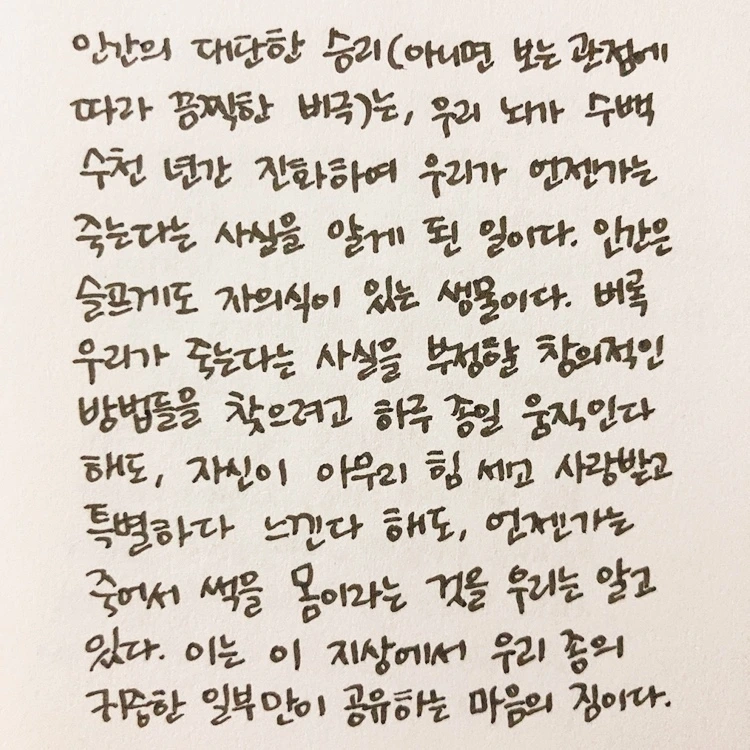 인간의 대단한 승리(아니면 보는 관점에
따라 끔찍한 비극)는, 우리 뇌가 수백
수천 년간 진화하여 우리가 언젠가는
죽는다는 사실을 알게 된 일이다. 인간은
슬프게도 자의식이 있는 생물이다. 비록
우리가 죽는다는 사실을 부정할 창의적인
방법들을 찾으려고 하루 종일 움직인다
해도, 자신이 아무리 힘 세고 사랑받고
특별하다 느낀다 해도, 언젠가는
죽어서 썩을 몸이라는 것을 우리는 알고
있다. 이는 이 지상에서 우리 종의
귀중한 일부만이 공유하는 마음의 짐이다.